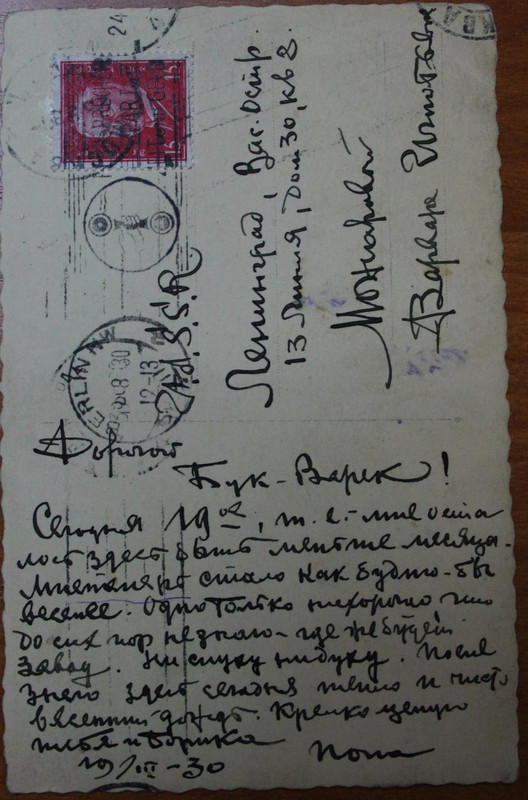 Дорогой
Бук-Варек!
Сегодня 19ое, т.е. мне оста
лось здесь быть меньше месяца.
Мне теперь стало как будто-бы
веселее. Одно только нехорошо что
до сих пор не знаю - где же будет
завод. Ни слуху ни духу. После
здесь сегодня тепло и чисто
весенний дождь. Крепко целую
тебя и Борика
папа
19/III-30
U.d.S.S.R
Ленинград, Вас. Остр.
13 линия, дом 30, кв 2.
Можаровой
Варваре
15
15
BERLIN NW
8
30
12-13
24